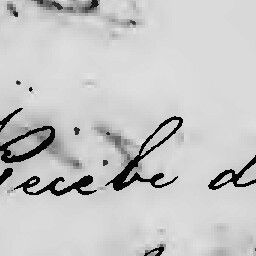 Recibe d